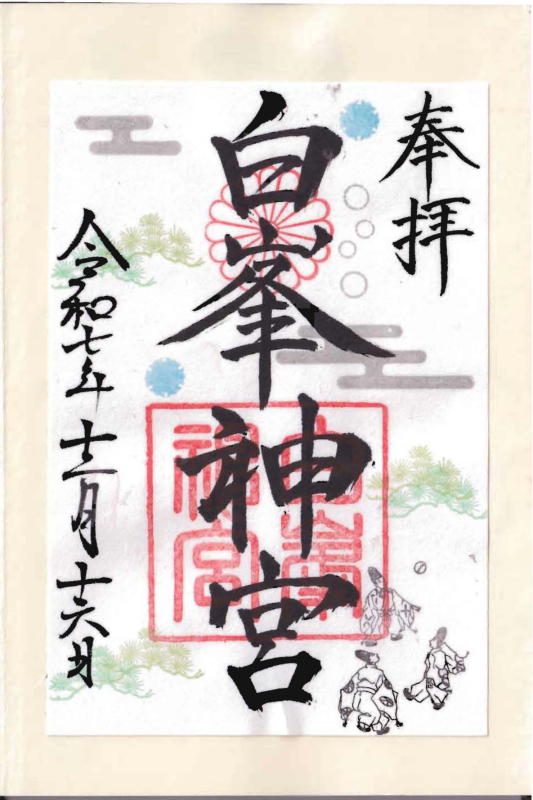 奉拝
白峯神宮
白峯神宮
令和七年十二月十六日